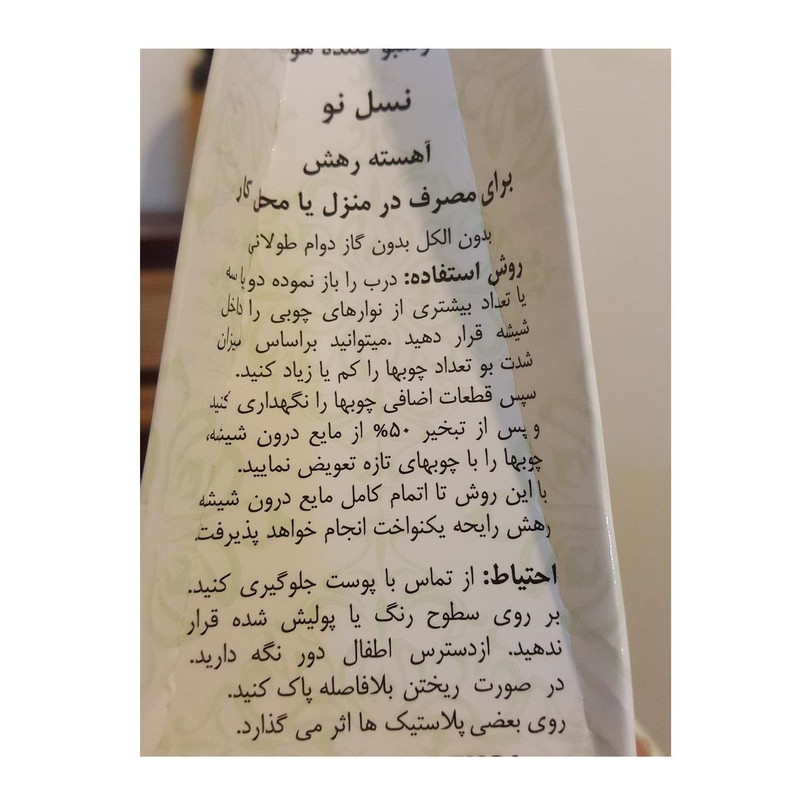 کننده هو
نسل نو
آهسته رهش
برای مصرف در منزل یا محل کار
بدون الکل بدون گاز دوام طولانی
روش استفاده: درب را باز نموده دو یا سه
یا تعداد بیشتری از نوارهای چوبی را داخل
شیشه قرار دهید .میتوانید براساس میزان
شدت بو تعداد چوبها را کم یا زیاد کنید.
سپس قطعات اضافی چوبها را نگهداری کنید
و پس از تبخیر ۵۰% از مایع درون شیشه،
چوبها را با چوبهای تازه تعویض نمایید.
با این روش تا اتمام کامل مایع درون شیشه
رهش رایحه یکنواخت انجام خواهد پذیرفت.
احتیاط: از تماس با پوست جلوگیری کنید.
بر روی سطوح رنگ یا پولیش شده قرار
ندهید. ازدسترس اطفال دور نگه دارید.
در صورت ریختن بلافاصله پاک کنید.
روی بعضی پلاستیک ها اثر می گذارد.